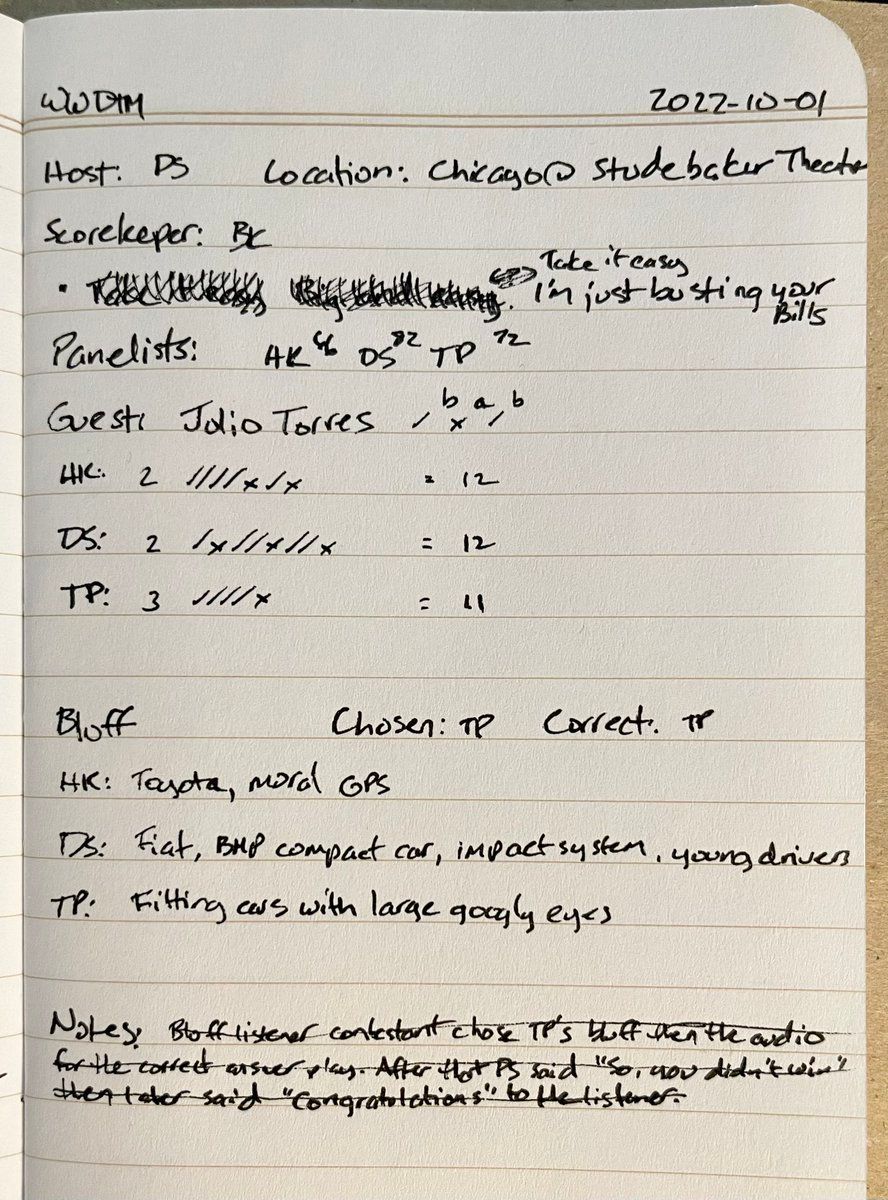 WWDTM 2022-10-01
Host: DS Location: Chicago @ Studebaker Theater
Scorekeeper: BK
• Take it easy
I'm just busting your
Bills
Panelists: HK 66 DS 82 TP 72
Guest: Julio Torres / b x a / b
HK: 2 ////x/x = 12
DS: 2 /x//x//x = 12
TP: 3 ////x = 11
Bluff Chosen: TP Correct: TP
HK: Toyota, moral GPS
DS: Fiat, BHP compact car, impact system, young drivers
TP: Fitting cars with large googly eyes
Notes: Bluff listener contestant chose TP's bluff then the audio
for the correct answer play. After that PS said "So, you didn't win"
then later said "Congratulations" to the listener.